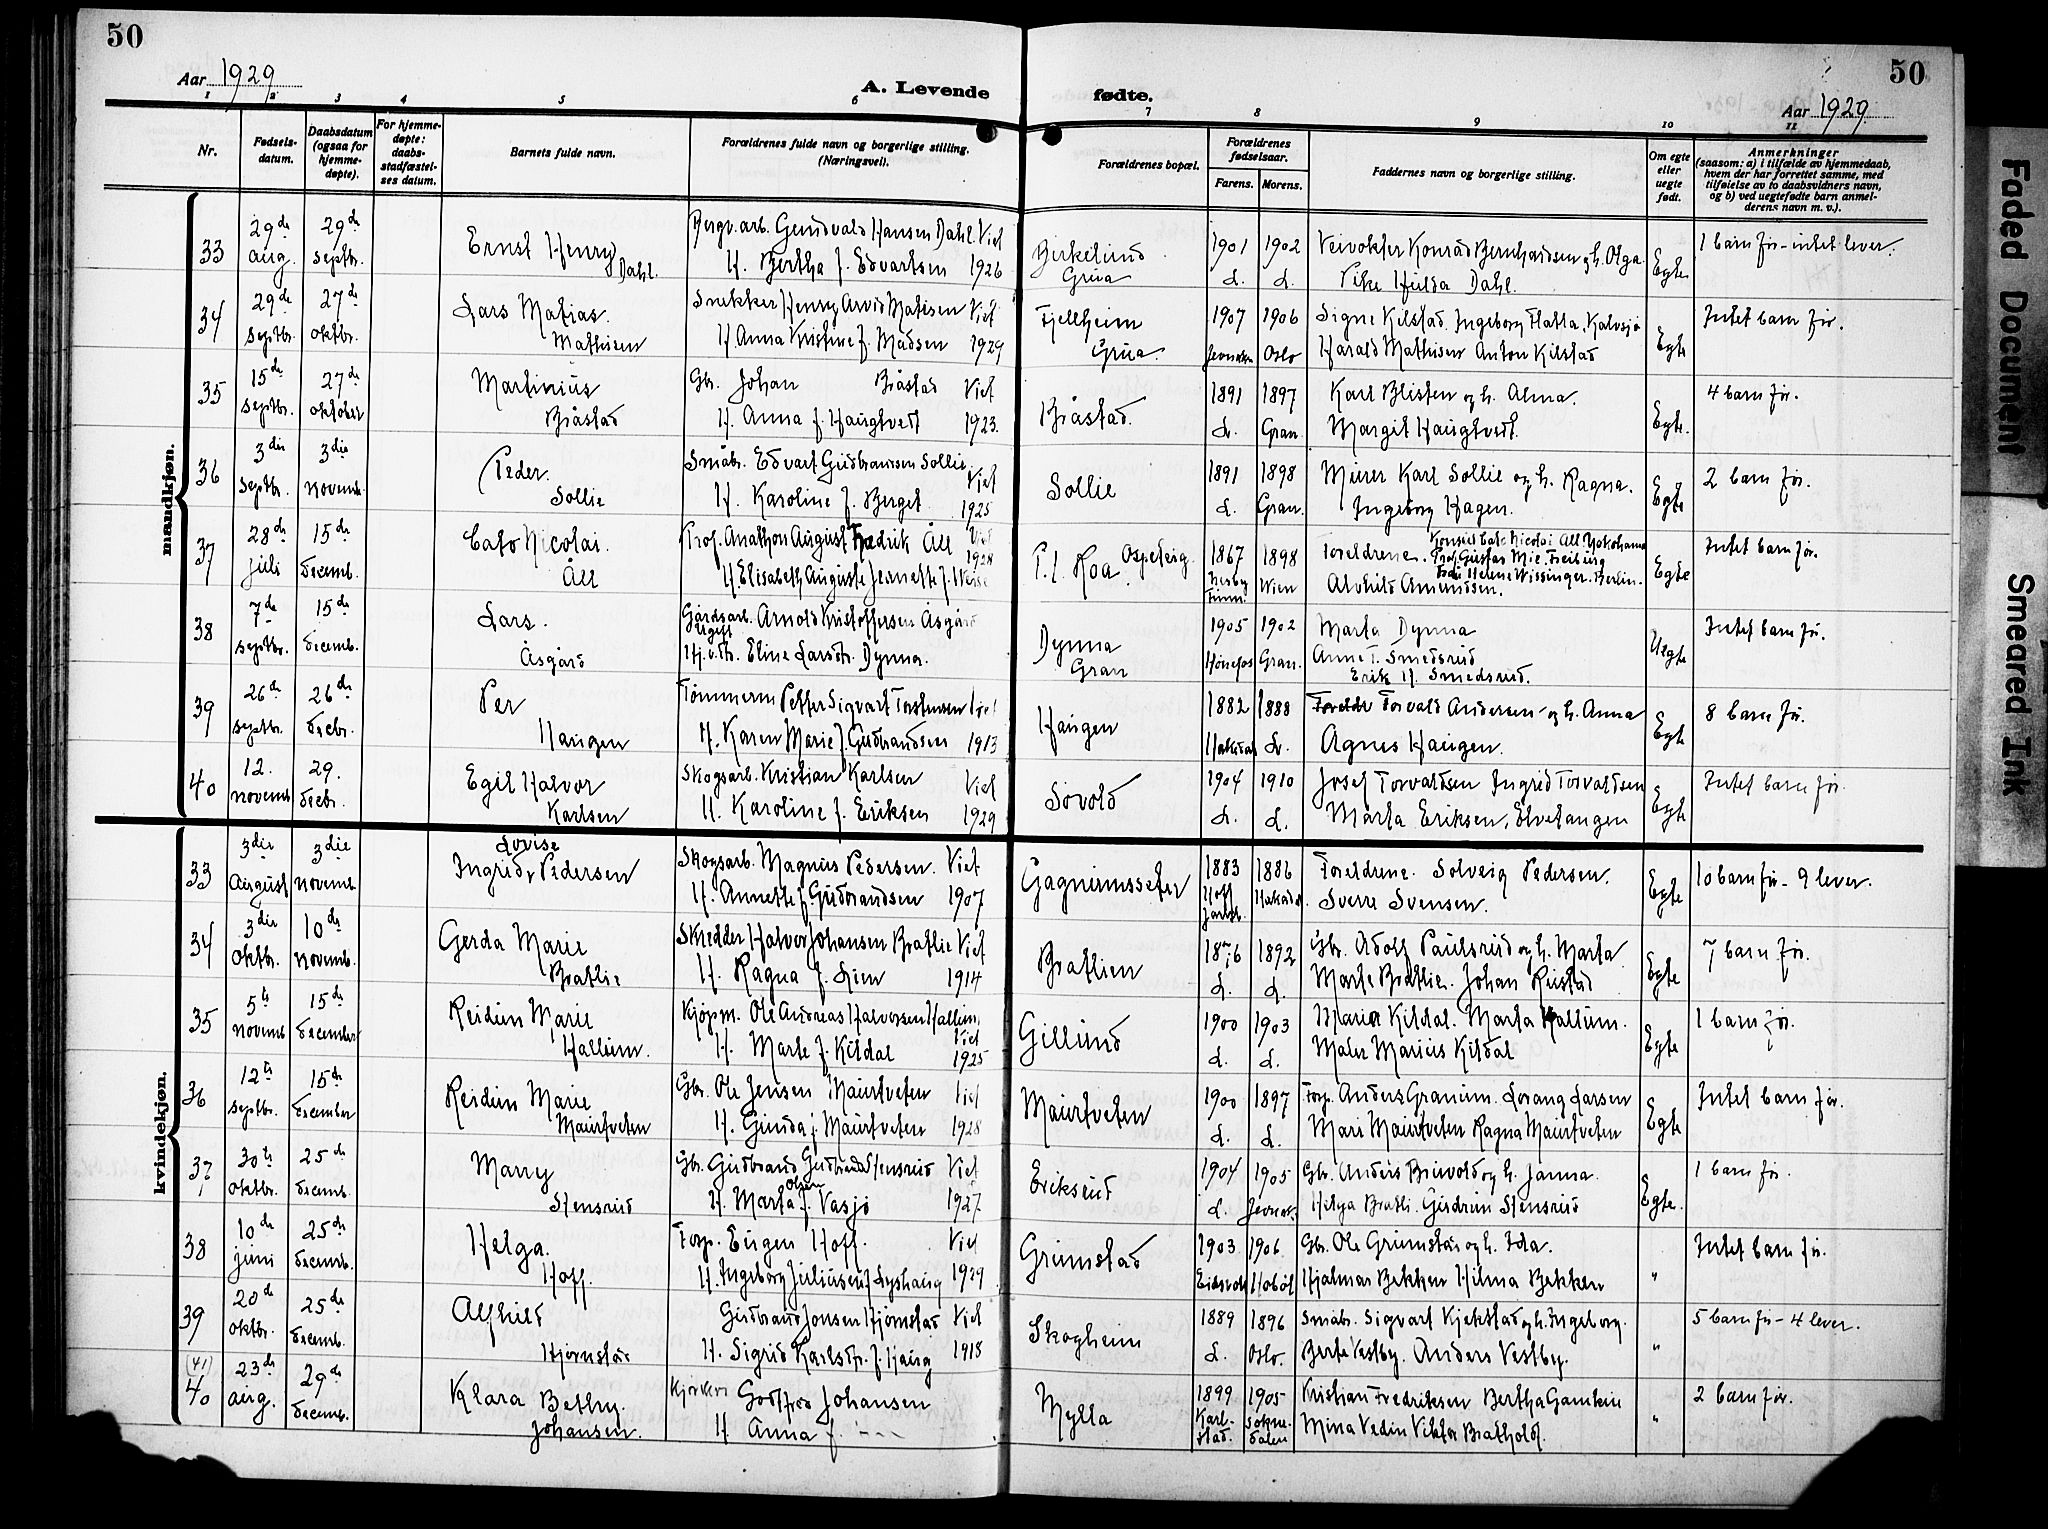 50
50
Aar 1929
A. Levende fødte.
Aar 1929
1 2 3 4 5 6 7 8 9 10 11
Nr.
Fødsels-datum.
Daabsdatum (ogsaa for hjemme-døpte).
For hjemme-døpte: daabs-stadfæstel-ses datum.
Barnets fulde navn.
Forældrenes fulde navn og borgerlige stilling. (Næringsvei).
Forældrenes bopæl.
Forældrenes fødselsaar.
Farens. Morens.
Faddernes navn og borgerlige stilling.
Om egte eller uegte født.
Anmerkninger
(saasom: a) i tilfælde av hjemmedaab, hvem der har forrettet samme, med tilføielse av to daabsvidners navn, og b) ved uegtefødte barn anmel-derens navn m. v.).
mandkjøn.
33 29de aug. 29de septbr. Ernst Henry Dahl. Bergv.arb. Gundvald Hansen Dahl Viet H. Bertha f. Edvartsen 1926 Birkelund Grua 1901 L. 1902 L. Veivokter Konrad Bernhardsen og h. Olga Pike Hulda Dahl. Egte 1 barn før - intet lever.
34 29de septbr. 27de oktbr. Lars Matias. Mathisen Snekker Henry Arvid Matisen Viet H. Anna Kristine f. Madsen 1929 Fjellheim Grua. 1907 Jevnaker 1906 Oslo Signe Kilstad Ingeborg Flatla, Kalvsjø Harald Mathisen Anton Kilstad Egte Intet barn før.
35 15de septbr. 27de oktober Martinius Bråstad Gbr. Johan Bråstad Viet H. Anna f. Haugtvedt 1923. Bråstad. 1891 L. 1897 Gran. Karl Blisten og h. Alma. Margit Haugtvedt. Egte. 4 barn før.
36 3die septbr. 3die novemb. Peder. Sollie Småbr. Edvart Gudbrandsen Sollie. Viet H. Karoline f. Berget 1925 Sollie 1891 L. 1898 Gran. Murer Karl Sollie og h. Ragna. Ingeborg Hagen. Egte 2 barn før.
37 28de juli 15de decemb. Cato Nicolai. Åll Prof. Anathon August Fredrik Åll Viet 1928 H. Elisabeth Auguste Jeanette f. Weise P.t. Roa Ospeteig. 1867 1898 Wien Foreldrene. Konsul Cato Nicolai Åll Yokohama Prof. Gustav Mie. Freiburg Frøk. Helene Wissinger. Berlin. Alvhild Amundsen. Egte Intet barn før.
38 7de septbr. 15de decemb. Lars. Åsgård Gårdsarb. Arnold Kristoffersen Åsgård Ugift Eline Larsdtr. Dynna. Dynna Gran 1905 Hønefos 1902 Gran. Marta Dynna Anne T. Smedsrud Erik H. Smedsrud. Uegte Intet barn før.
39 26de septbr. 26de decbr. Per Haugen Tømmerm Petter Sigvart Torstensen Viet H. Karen Marie f. Gudbrandsen 1913 Haugen 1882 Hakadal 1888 L. Foreldr Torvald Andersen og h. Anna Agnes Haugen. Egte 8 barn før.
40 12. novemb 29. decbr. Egil Halvor Karlsen Skogsarb. Kristian Karlsen Viet H. Karoline f. Eriksen 1929 Søvold 1904 L. 1910 L. Josef Torvaldsen Ingrid Torvaldsen Marta Eriksen, Elvetangen Egte Intet barn før.
kvindekjøn.
33 3die August 3die novemb Ingrid Lovise Pedersen Skogsarb. Magnus Pedersen. Viet H. Annette f. Gudbrandsen 1907 Gagnumsseter 1883 Hoff 1886 Hakadal Foreldrene. Solveig Pedersen. Sverre Svensen. Egte 10 barn før - 9 lever.
34 3die oktbr. 10de novemb. Gerda Marie Bratlie Skredder Halvor Johansen Bratlie Viet H. Ragna f. Lien 1914 Bratlien 1876 L. 1892 L. Gbr. Adolf Paulsrud og h. Marta Marte Bratlie. Johan Rustad Egte 7 barn før.
35 5te novemb 15de december Reidun Marie Hallum. Kjøpm. Ole Andreas Halvorsen Hallum, Viet H. Marte f. Kildal 1925 Gillund 1900 L. 1903 L. Maria Kildal. Marta Hallum. Maler Marius Kildal Egte 1 barn før.
36 12te septbr. 15de december Reidun Marie Maurtveten Gbr. Ole Jensen Maurtveten Viet H. Gunda f. Maurtveten 1928 Maurtveten 1900 L. 1897 L. Forp. Anders Granum. Lorang Larsen Mari Maurtveten Ragna Maurtveten Egte Intet barn før.
37 30te oktbr. 25de decemb. Marry Stensrud Gbr. Gudbrand Gudbrandsd Stensrud Viet H. Marta Olsen f. Vasjø 1927 Eriksrud 1904 L. 1905 Jevnak. Gbr. Anders Bruvold og h. Janna. Helga Bratli. Gudrun Stensrud Egte. 1 barn før.
38 10de juni 25de decemb. Helga. Hoff. Forp. Eugen Hoff. Viet H. Ingeborg Juliussen f. Lyshaug 1929 Grumstad 1903. Eidsvold 1906. Hobøl Gbr. Ole Grumstad og h. Ida. Hjalmar Bekken Hilma Bekken " " Intet barn før.
39 20de oktbr. 25de decemb. Alfhild Hjørnstad Gudbrand Jonsen Hjørnstad Viet H. Sigrid Karlsdtr. f. Haug 1918 Skogheim 1889 L. 1896 Oslo. Småbr. Sigvart Kjekstad og h. Ingeborg. Berte Vestby. Anders Vestby. " 5 barn før - 4 lever.
(41) 40 23de aug. 29de decemb. Klara Betty. Johansen. Godtfred Johansen H. Anna f. --- Mylla 1899 Karl-stad. 1905 Sokne-dalen Kristian Fredriksen Bertha Gamkin Mina Vedin Viktor Bratholdt. " 2 barn før.
Faded Document
Smeared Ink